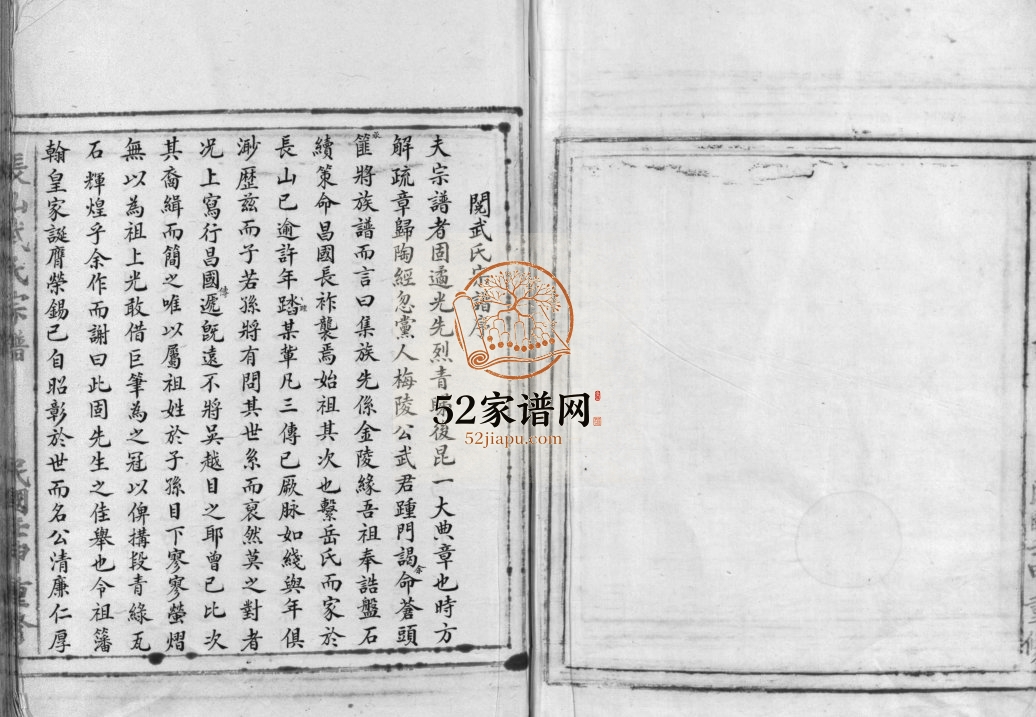 閱武氏宗譜序
夫宗譜者固遹光先烈青後昆一大典章也時方
解疏章歸陶經忽黨人梅陵公武君踵門謁余命蒼頭
篚將族譜而言曰集族先係金陵緣吾祖奉誥盤石
續策命昌國長祚襲焉始祖其次也繫岳氏而家於
長山已逾許年踏某輩凡三傳已厥脉如綫與年俱
渺歷茲而子若孫將有問其世系而裒然莫之對者
况上寫行昌國遞旣遠不將吳越目之耶曾已比次
其裔緝而簡之唯以屬祖姓於子孫目下寥寥螢熠
無以為祖上光敢借巨筆為之冠以俾搆段青綠瓦
石輝煌乎余作而謝曰此固先生之佳舉也令祖籓
翰皇家誕膺榮錫已自昭彰於世而名公清廉仁厚
長山武氏宗譜
民國壬申重修
52家谱网
52jiapu.com